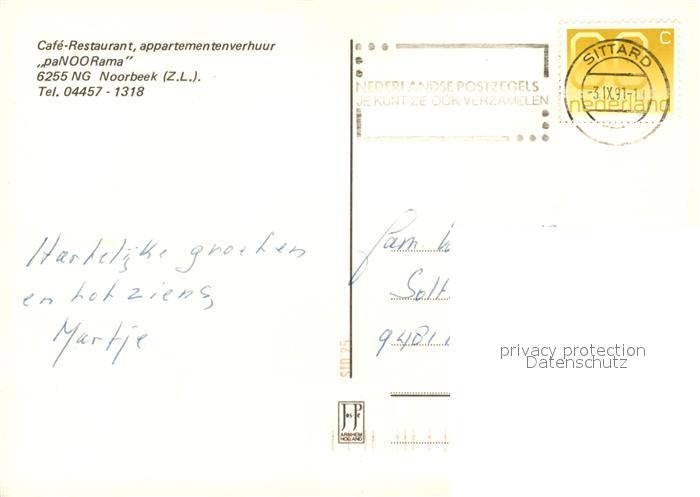 Café-Restaurant, appartementenverhuur
„paNOORama”
6255 NG Noorbeek (Z.L.).
Tel. 04457 - 1318
NEDERLANDSE POSTZEGELS
JE KUNT ZE OOK VERZAMELEN
SITTARD
-3.IX.91-1
60 c
nederland
Hartelijke groeten
en tot ziens,
Martje
Fam.
Solt
9481
privacy protection
Datenschutz
STD 25
JosPe
ARNHEM
HOLLAND